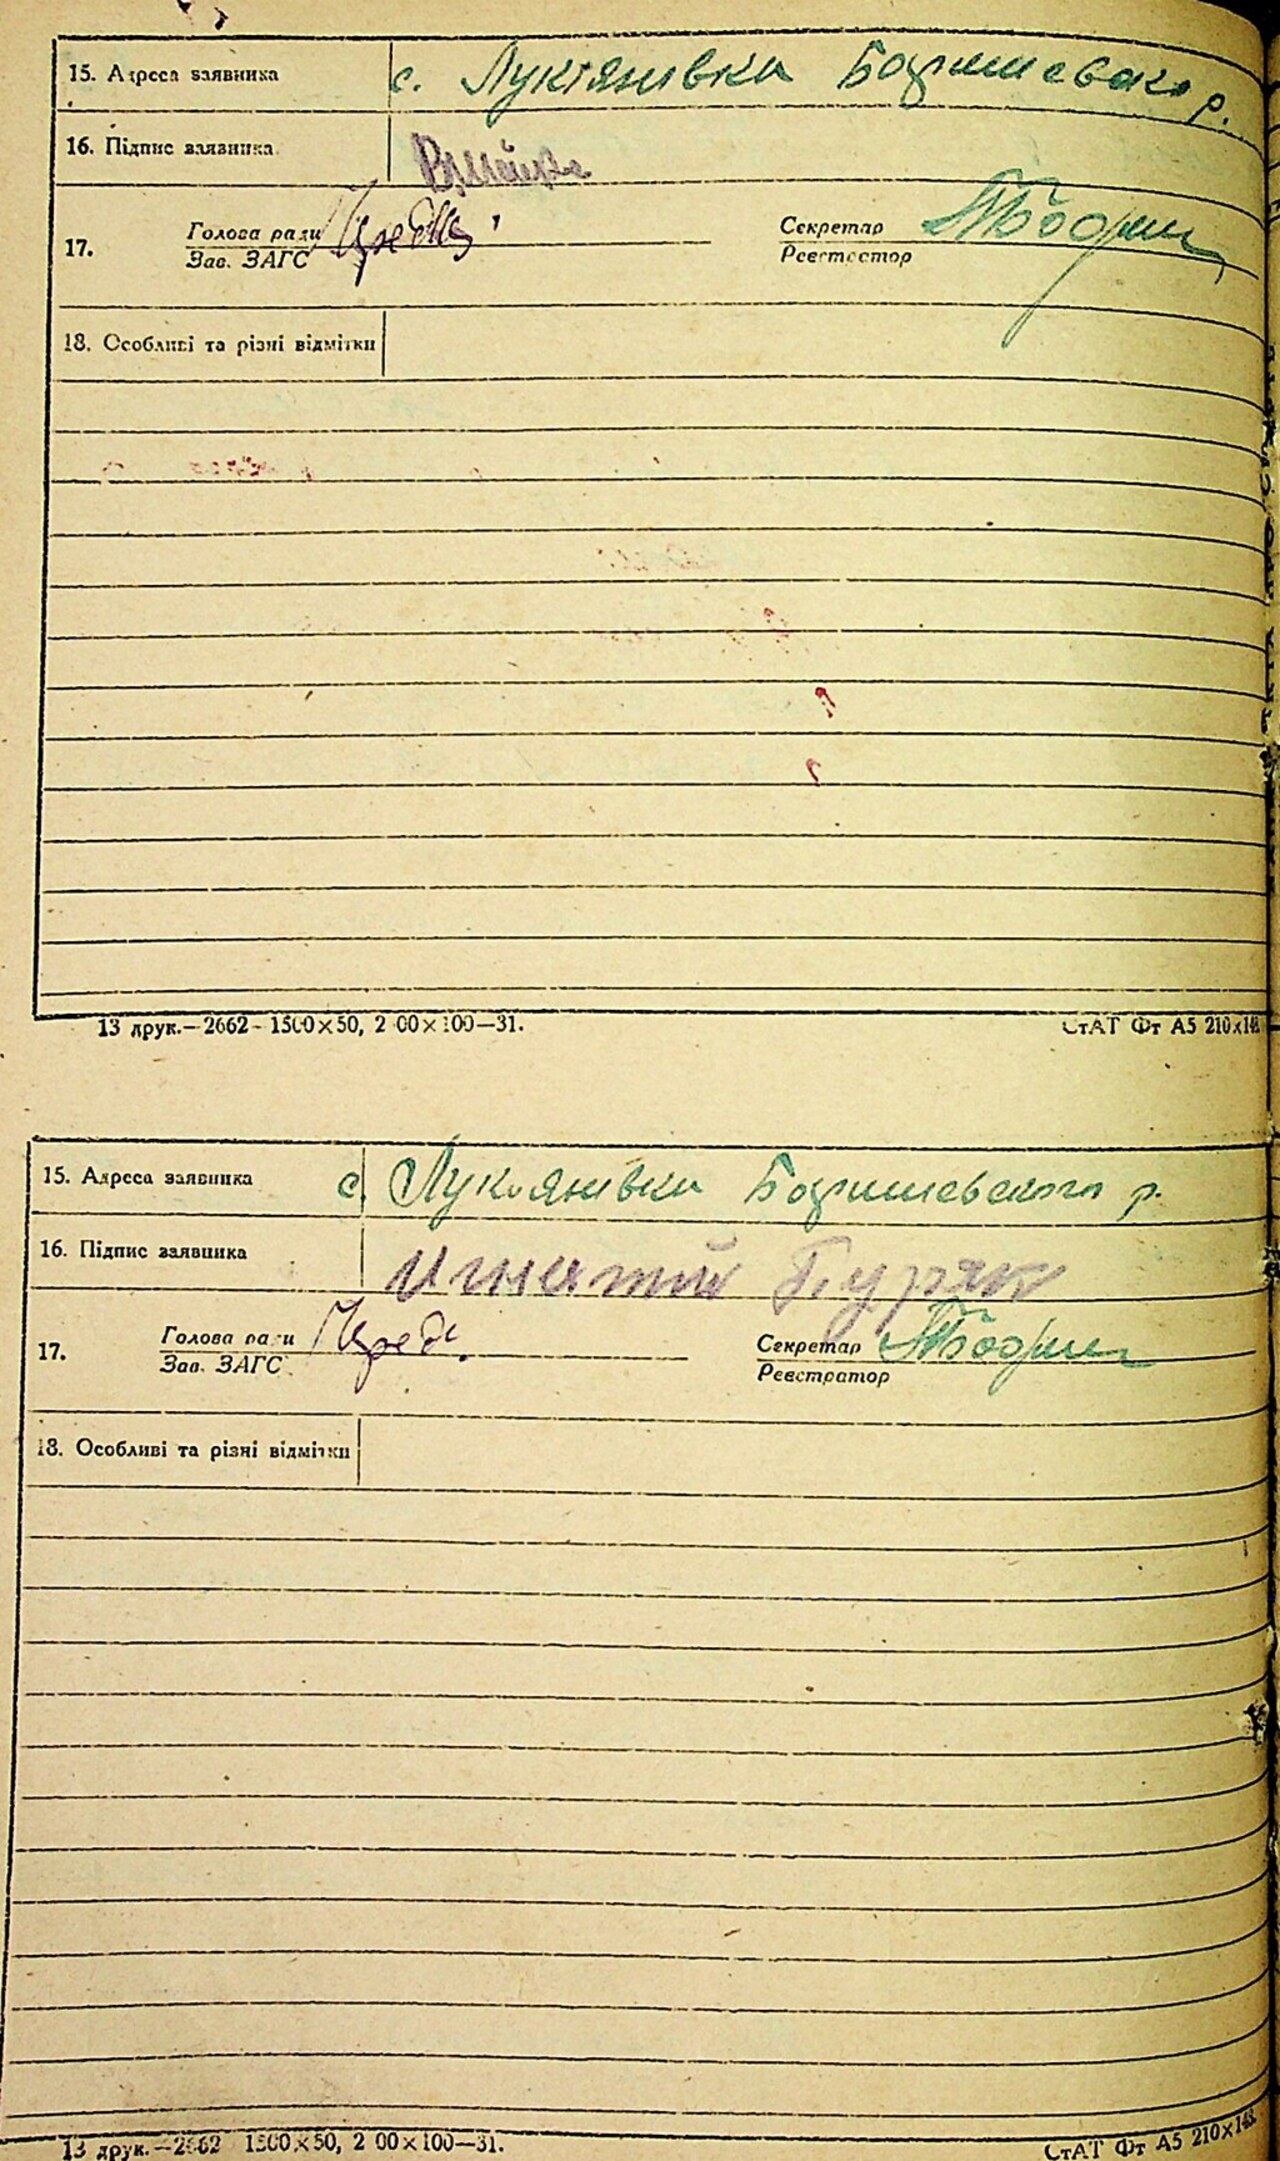 15. Адреса заявника с. Лук'янівка Баришевсько р.
16. Підпис заявника
17. Голова ради Секретар
Зав. ЗАГС Реєстратор
18. Особливі та різні відмітки
13 друк.—2662 - 1500×50, 2 00×100—31. СтАТ Фт А5 210×148
15. Адреса заявника с. Лукоянівка Баришевського р.
16. Підпис заявника Игнатий Буряк
17. Голова ради Секретар
Зав. ЗАГС Реєстратор
18. Особливі та різні відмітки
13 друк.—2662 1500×50, 2 00×100—31. СтАТ Фт А5 210×148